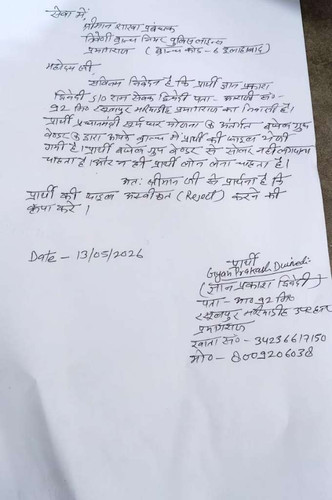 सेवा में,
श्रीमान शाखा प्रबंधक
त्रिवेणी ब्रान्च सिविल पुलिस लाइन्स
प्रयागराज (ब्रान्च कोड - 6 इलाहाबाद)
महोदय जी,
सविनय निवेदन है कि प्रार्थी ज्ञान प्रकाश
द्विवेदी S/O राम सेवक द्विवेदी पता - म०नं० सं०-
92 मि० रसूलपुर मरियाडीह प्रयागराज का निवासी है।
प्रार्थी प्रधानमंत्री सूर्य घर योजना के अंतर्गत
वेण्डर के द्वारा आपके ब्रान्च में प्रार्थी की फाइल भेजी
गयी है। प्रार्थी ग्रुप वेण्डर से सोलर नहीं लगवाना
चाहता है। और न ही प्रार्थी लोन लेना चाहता है।
अतः श्रीमान जी से प्रार्थना है कि
प्रार्थी की फाइल अस्वीकृत (Reject) करने की
कृपा करें।
Date - 13/05/2026
प्रार्थी
Gyan Prakash Dwivedi
(ज्ञान प्रकाश द्विवेदी)
पता - म० 92 मि०
रसूलपुर मरियाडीह
प्रयागराज
खाता सं० - 34236617150
मो० - 8009206038